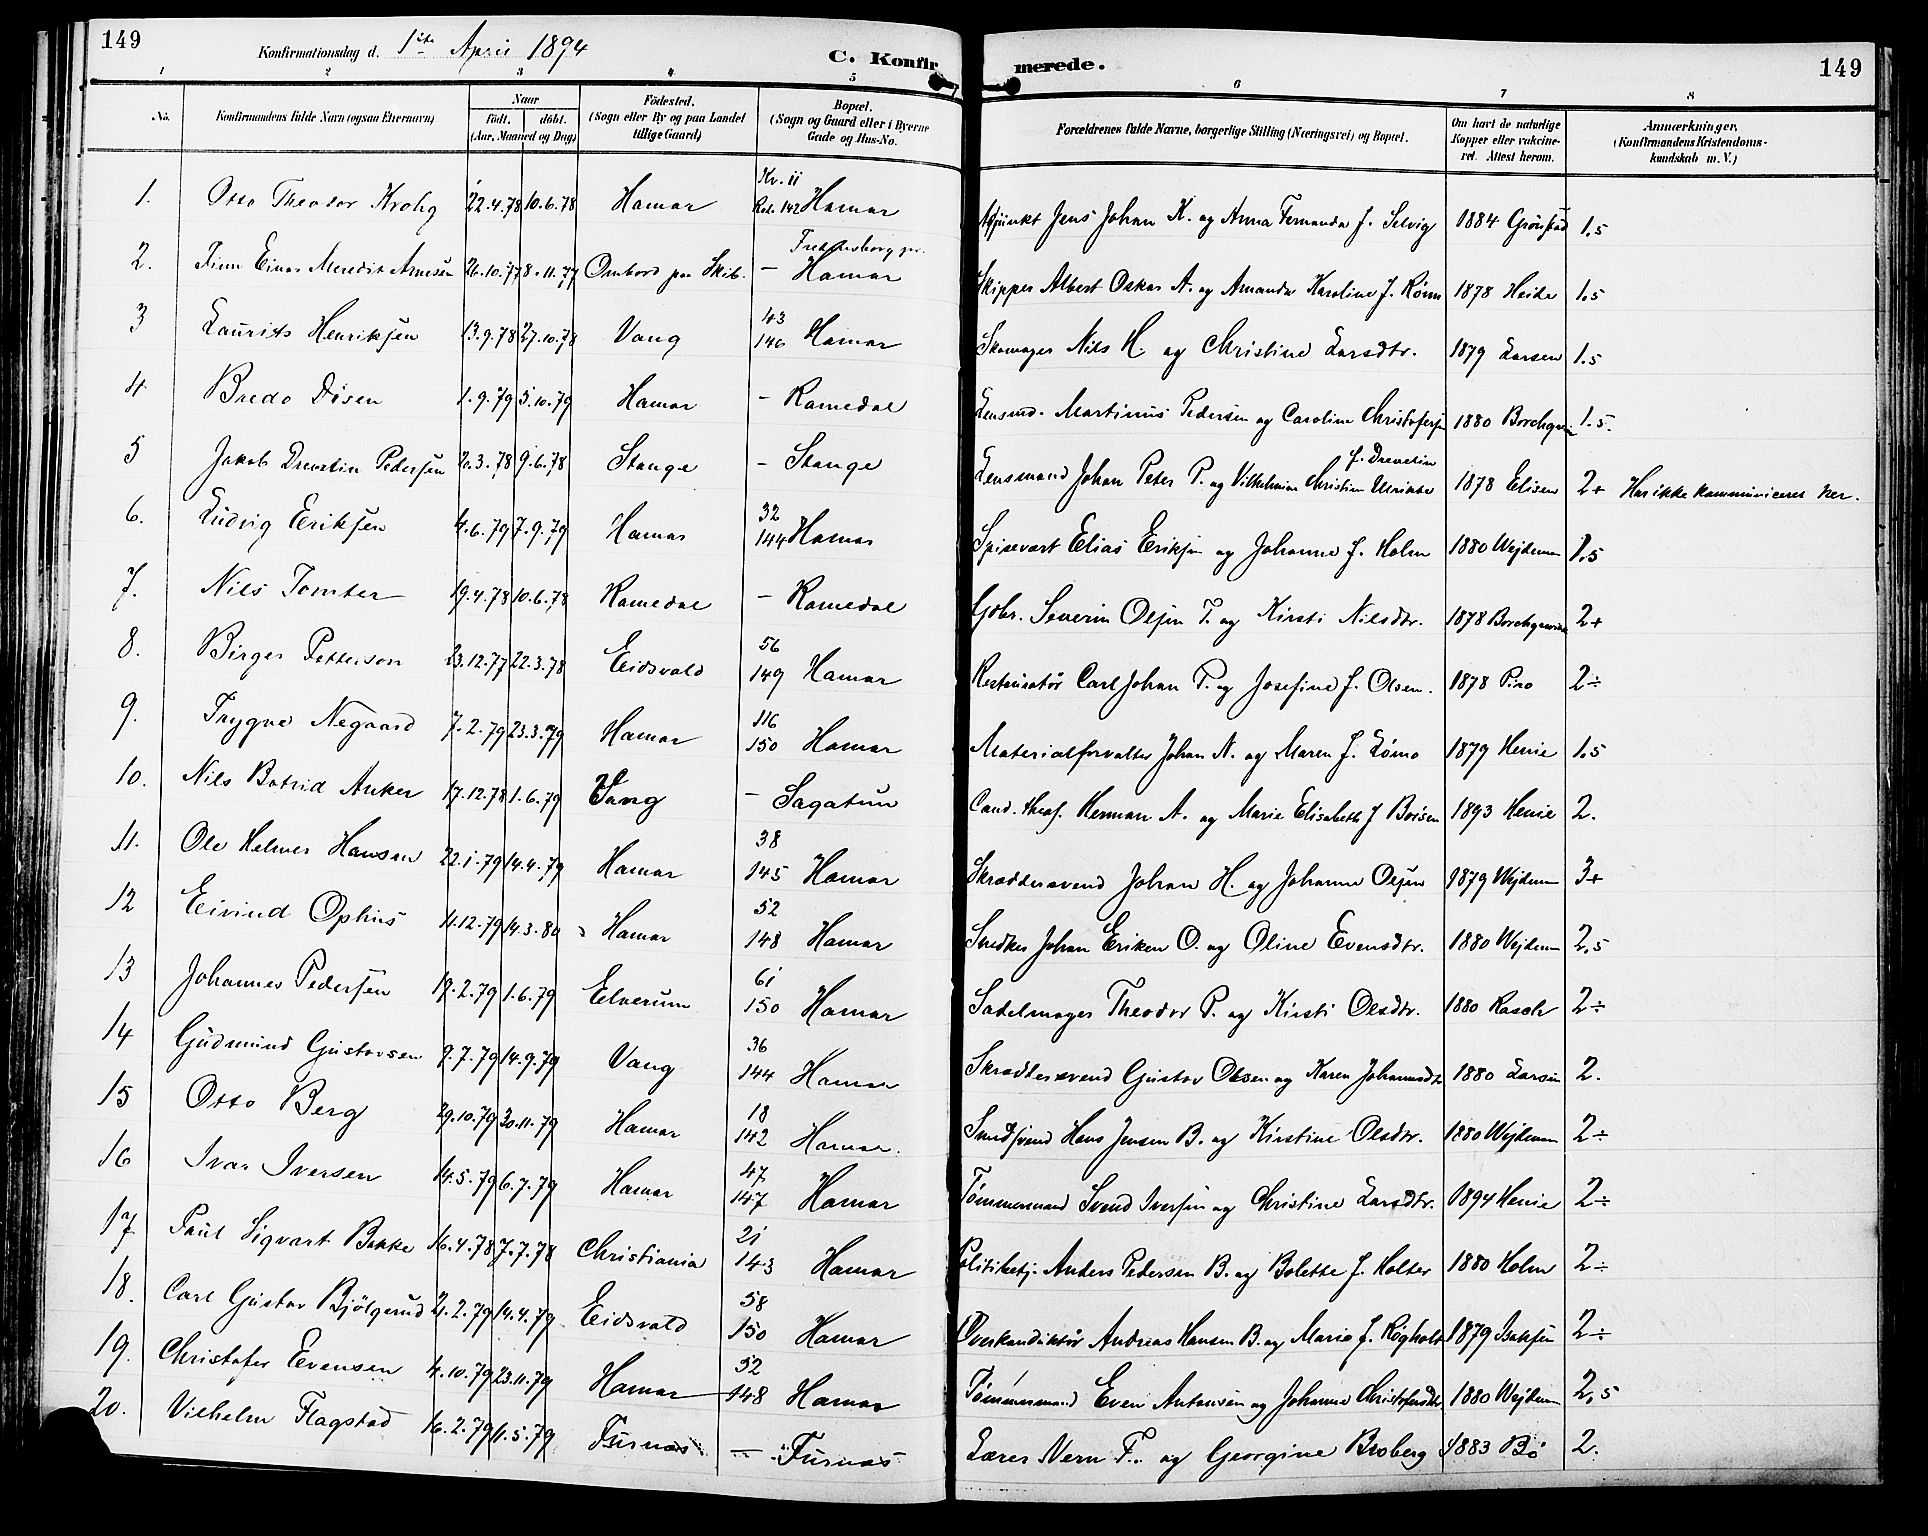 149
Konfirmationsdag d. 1ste April 1894
C. Konfirmerede.
149
1 2 3 4 5 6 7 8
No. Konfirmandens fulde Navn (ogsaa Efternavn) Naar født. døbt. (Aar, Maaned og Dag) Fødested. (Sogn eller By og paa Landet tillige Gaard) Bopæl. (Sogn og Gaard eller i Byerne Gade og Hus-No. Forældrenes fulde Navne, borgerlige Stilling (Næringsvei) og Bopæl. Om havt de naturlige Kopper eller vakcineret. Attest herom. Anmærkninger. (Konfirmandens Kristendomskundskab m. V.)
1. Otto Theodor Krohg 22.4.78 10.6.78 Hamar Kv. 11 142 Hamar Adjunkt Jens Johan K. og Anna Fernanda f. Selvig 1884 1.5
2. Finn Einar Meredit Arnesen 26.10.77 8.11.77 Ombord paa Skib. - Hamar Skipper Albert Oskar A. og Amanda Karoline f. 1878 Heide 1.5
3 Laurits Henriksen 13.9.78 27.10.78 Vang 43 146 Hamar Skomager Nils H. og Christine Larsdtr. 1879 Larsen 1.5
4 Bredo Disen 1.9.79 5.10.79 Hamar - Romedal Lensmd. Martinus Pedersen og Caroline 1880 1.5.
5 Jakob Pedersen 20.3.78 9.6.78 Stange - Stange Lensmand Johan Peter P. og Vilhelmine Christine Ulrikke f. Drevelin 1878 Elisen 2+ Har ikke kommuniceret her.
6. Ludvig Eriksen 4.6.79 7.9.79 Hamar 32 144 Hamar Spisevært Elias Eriksen og Johanne f. Holm 1880 1.5
7. Nils Tomter 19.4.78 10.6.78 Romedal - Romedal Gbr. Severin Olsen T. og Kirsti Nilsdtr. 1878 2+
8. Birger Petterson 23.12.77 22.3.78 Eidsvold 56 149 Hamar Restauratør Carl Johan P. og Josefine f. Olsen. 1878 Piro 2÷
9. Trygve Negaard 7.2.79 23.3.79 Hamar 116 150 Hamar Materialforvalter Johan N. og Maren f. Lømo 1879 Henie 1.5
10. Nils Botvid Anker 17.12.78 1.6.79 Vang - Sagatun Cand. theol. Herman A. og Marie Elisabeth f Boisen 1893 Henie 2.
11. Ole Helmer Hansen 22.1.79 14.4.79 Hamar 38 145 Hamar Skræddersvend Johan H. og Johanne Olsen 1879 3+
12 Eivind Ophus 11.12.79 14.3.80 Hamar 52 148 Hamar Snedker Johan Eriksen O. og Oline Evensdtr. 1880 2,5
13 Johannes Pedersen 19.2.79 1.6.79 Elverum 61 150 Hamar Sadelmager Theodor P. og Kirsti Olsdtr. 1880 Rasch 2÷
14 Gudmund Gustavsen 9.7.79 14.9.79 Vang 36 144 Hamar Skræddersvend Gustav Olsen og Karen Johannesdtr 1880 Larsen 2.
15 Otto Berg 29.10.79 30.11.79 Hamar 18 142 Hamar. Smedsvend Hans Jensen B. og Kirstine Olsdtr. 1880 2÷
16 Ivar Iversen 14.5.79 6.7.79 Hamar 47 147 Hamar Tømmermand Svend Iversen og Christine Larsdtr. 1894 Henie 2÷
17 Paul Sigvart Bakke 16.4.78 7.7.78 Christiania 21 143 Hamar Politibetj. Anders Pedersen B. og Bolette f. Holter 1880 Holm 2÷
18. Carl Gustav Bjølgerud 21.2.79 14.4.79 Eidsvold 58 150 Hamar Overkonduktør Andreas Hansen B. og Marie f. Røgholt 1879 Isaksen 2÷
19. Christofer Evensen 4.10.79 23.11.79 Hamar 52 148 Hamar Tømmermand Even Antonsen og Johanne Christofersdtr 1880 2,5
20. Vilhelm Flagstad 16.2.79 11.5.79 Furnæs - Furnæs Lærer Nern F. og Georgine Broberg 1883 Bö 2.